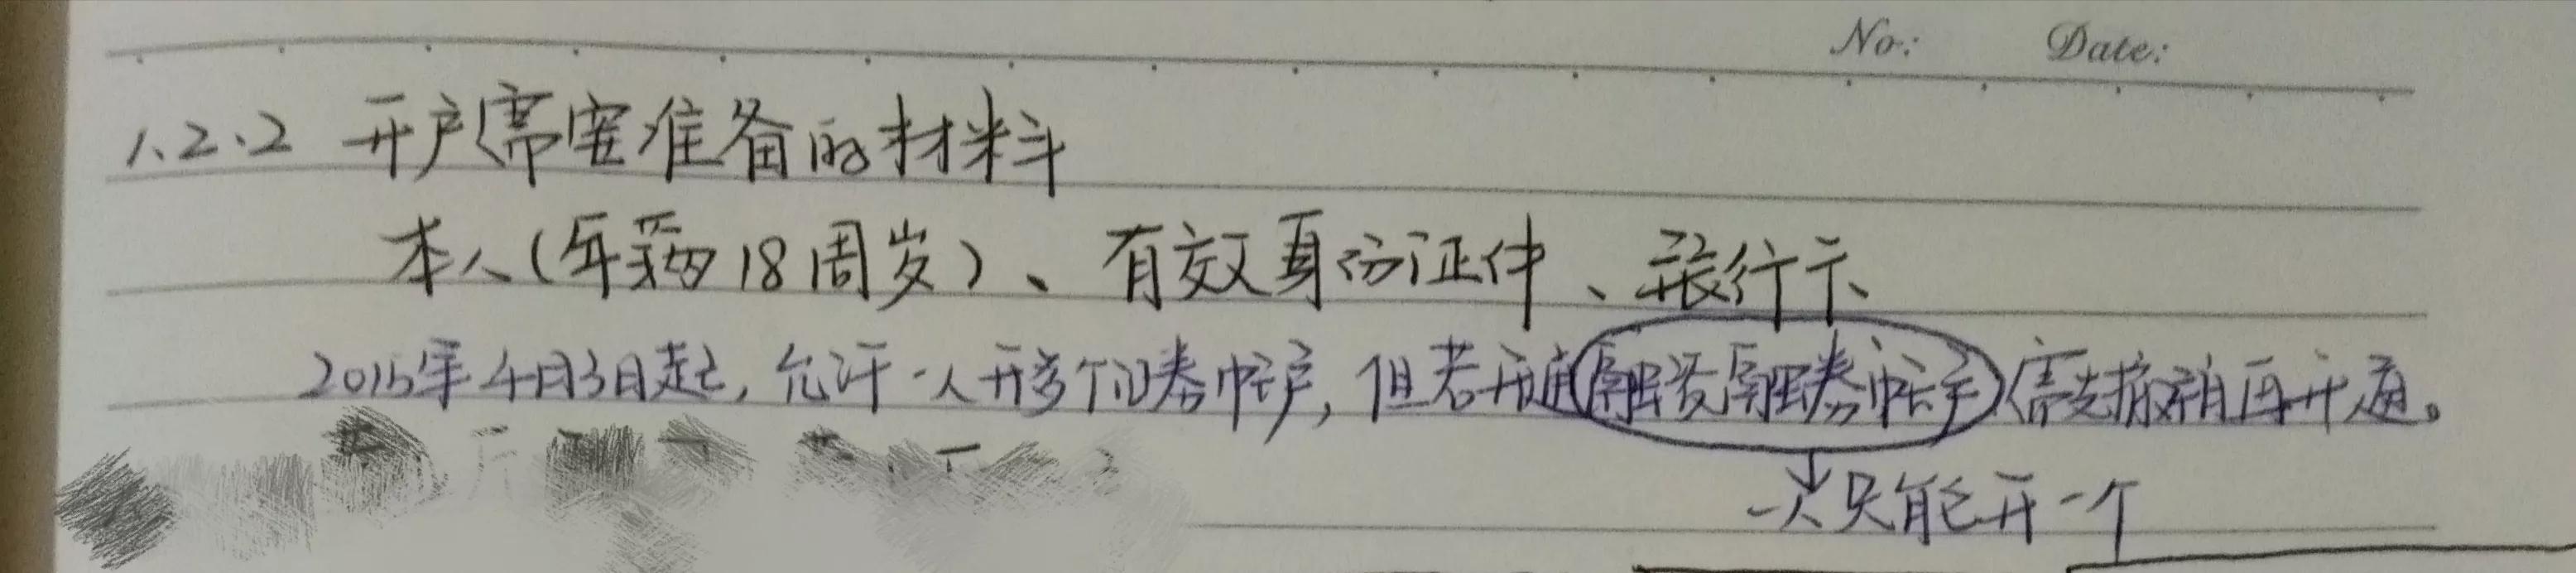 No: Date:
1.2.2 开户需要准备的材料
本人(年满18周岁)、有效身份证件、银行卡
2015年4月3日起,允许一人开多个证券帐户,但若开通融资融券帐户需先撤销再开通。
一人只能开一个